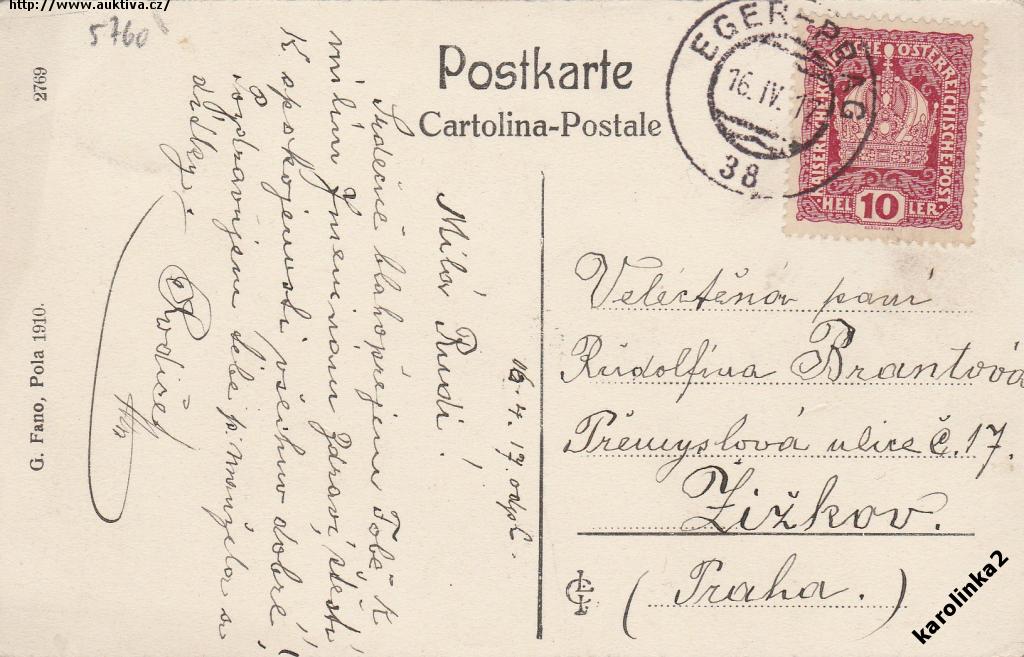 http://www.auktiva.cz/
5760
2769
G. Fano, Pola 1910.
Postkarte
Cartolina-Postale
EGER-PRAG
16.IV.17
38
KAISERLICHE KÖNIGLICHE ÖSTERREICHISCHE POST
HELLER
10
16.4.17. odp.
Milá Rudi!
Srdečně blahopřejem Tobě, k
milým Jmeninám zdraví štěstí
K spokojenosti všeho dobré,
Pozdravujem Tebe p. manžela a
dítky.
Rodiče
Velectěná paní
Rudolfina Brantová
Přemyslová ulice č. 17.
Žižkov.
(Praha.)
karolinka2